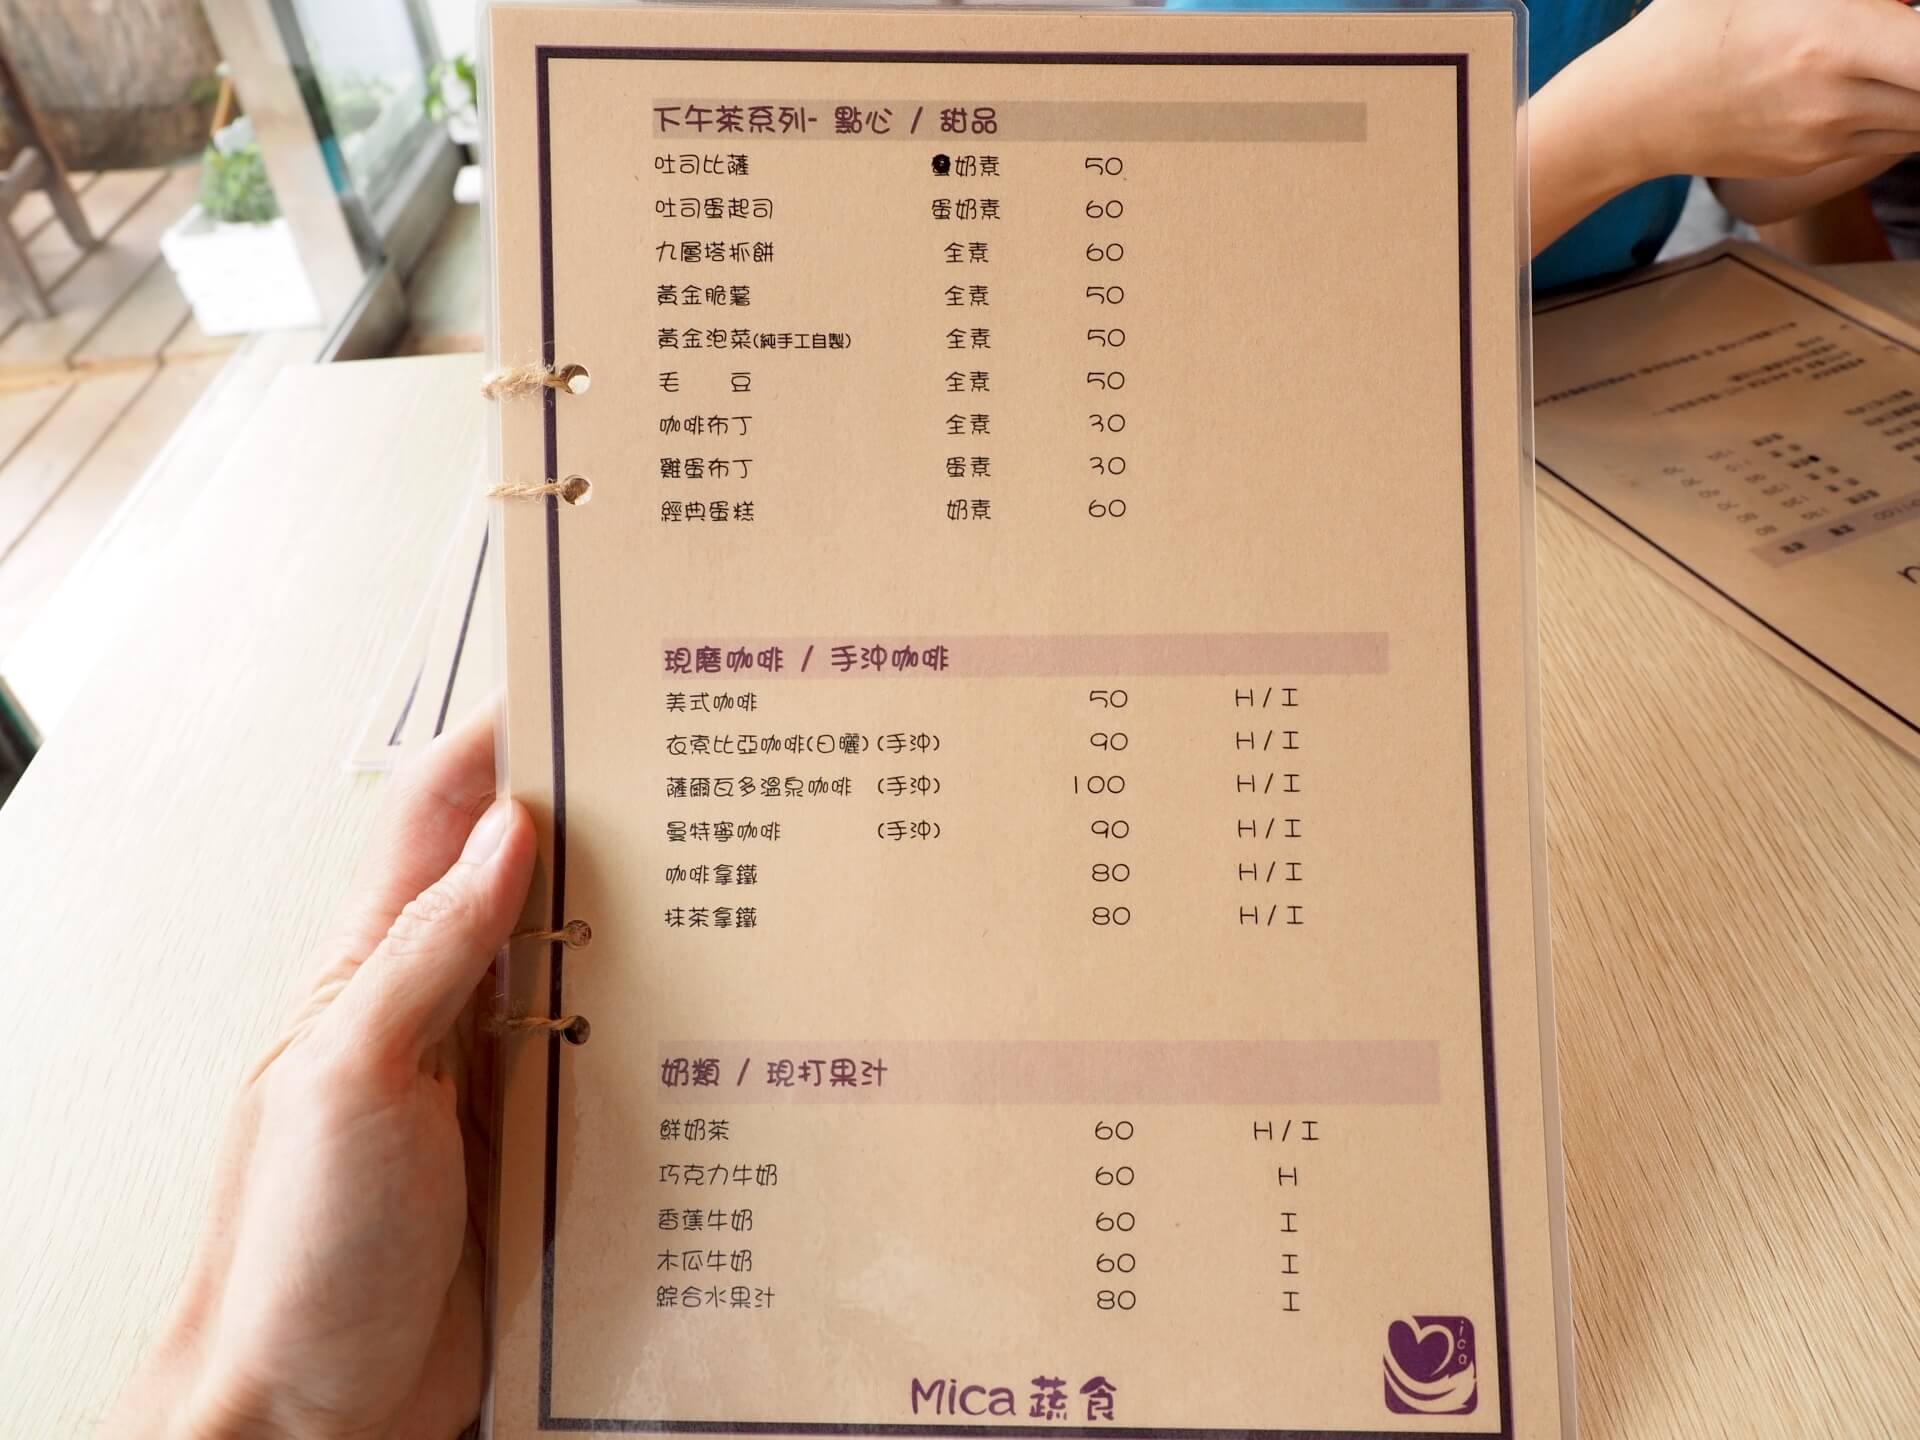 下午茶系列- 點心 / 甜品
吐司比薩 奶素 50
吐司蛋起司 蛋奶素 60
九層塔抓餅 全素 60
黃金脆薯 全素 50
黃金泡菜(純手工自製) 全素 50
毛 豆 全素 50
咖啡布丁 全素 30
雞蛋布丁 蛋素 30
經典蛋糕 奶素 60
現磨咖啡 / 手沖咖啡
美式咖啡 50 H / I
衣索比亞咖啡(日曬)(手沖) 90 H / I
薩爾瓦多溫泉咖啡 (手沖) 100 H / I
曼特寧咖啡 (手沖) 90 H / I
咖啡拿鐵 80 H / I
抹茶拿鐵 80 H / I
奶類 / 現打果汁
鮮奶茶 60 H / I
巧克力牛奶 60 H
香蕉牛奶 60 I
木瓜牛奶 60 I
綜合水果汁 80 I
Mica 蔬食
ica